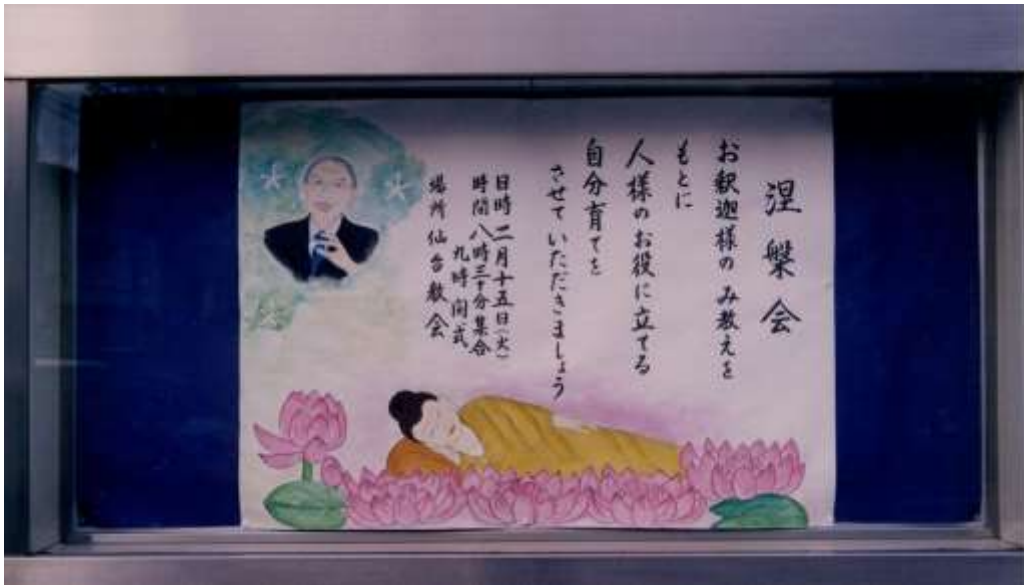 涅槃会
お釈迦様のみ教えを
もとに
人様のお役に立てる
自分育てを
させていただきましょう
日時 二月十五日(火)
時間 八時三十分集合
九時開式
場所 仙台教会